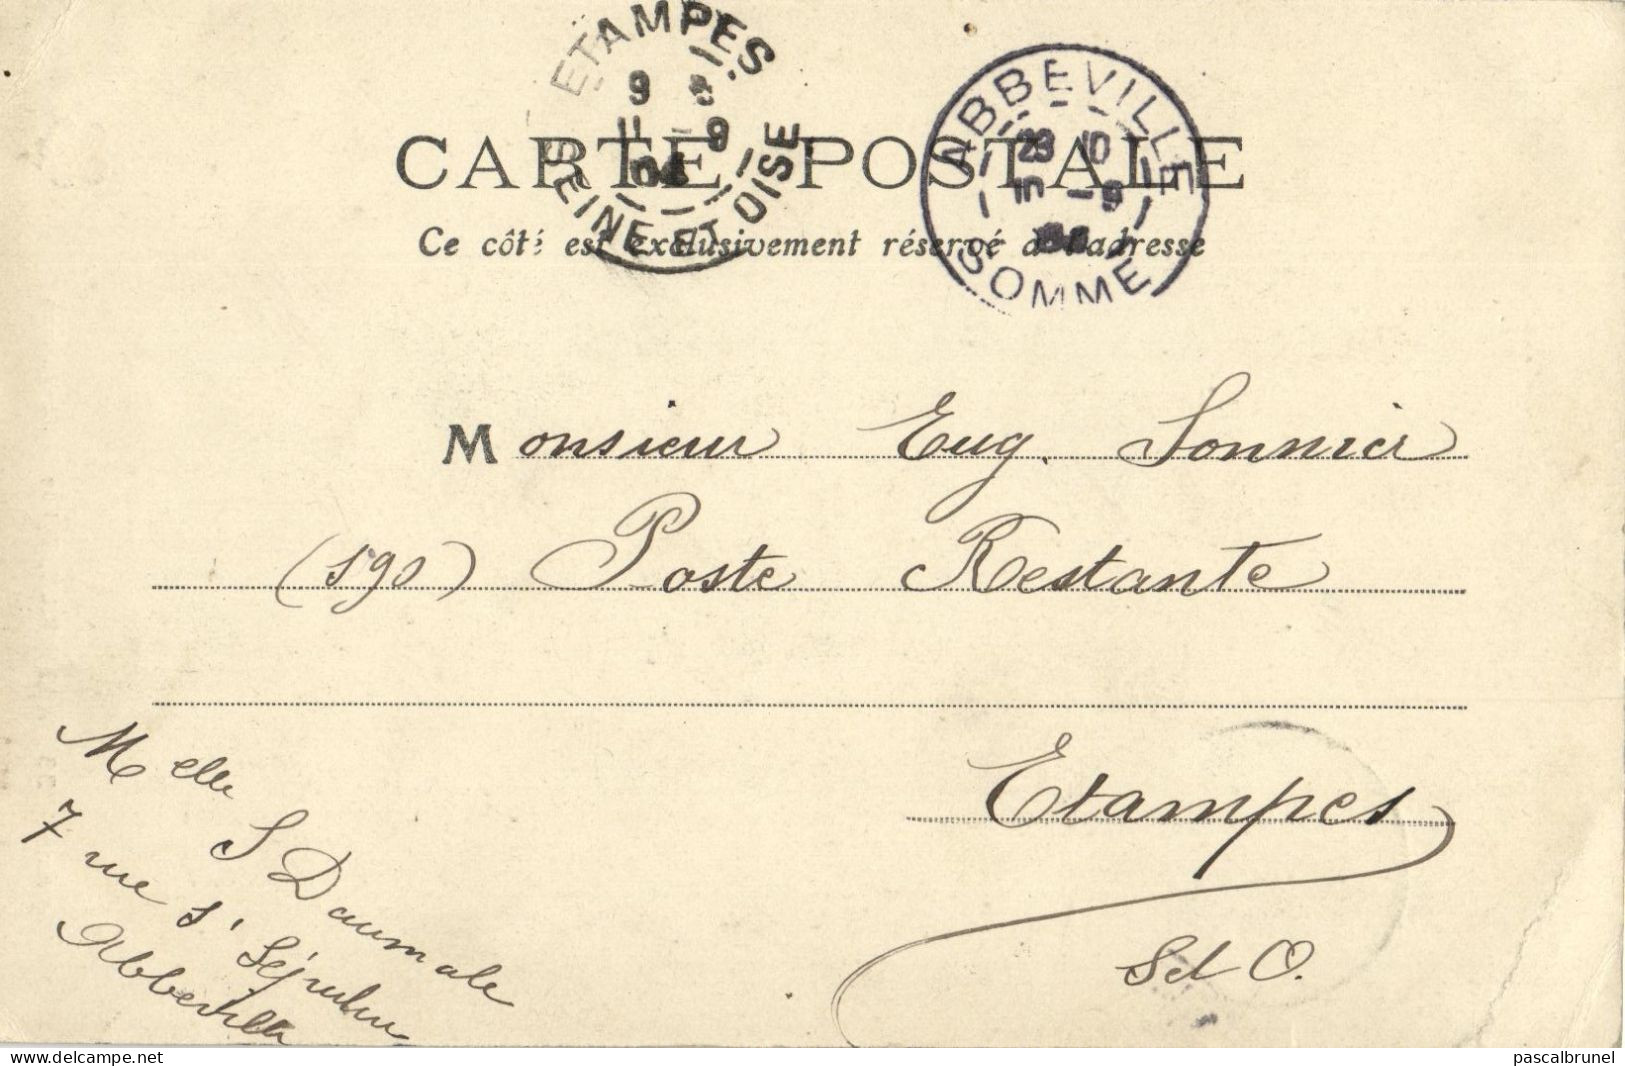 ETAMPES
9 9
11
SEINE ET OISE
ABBEVILLE
23 10
10 9
SOMME
CARTE POSTALE
Ce côté est exclusivement réservé à l'adresse
Monsieur Eug. Sonnier
(590) Poste Restante
Etampes
S et O.
Melle S Daumale
7 rue St
Abbeville
Website : http://pascalbrunel.delcampe.net
pascalbrunel